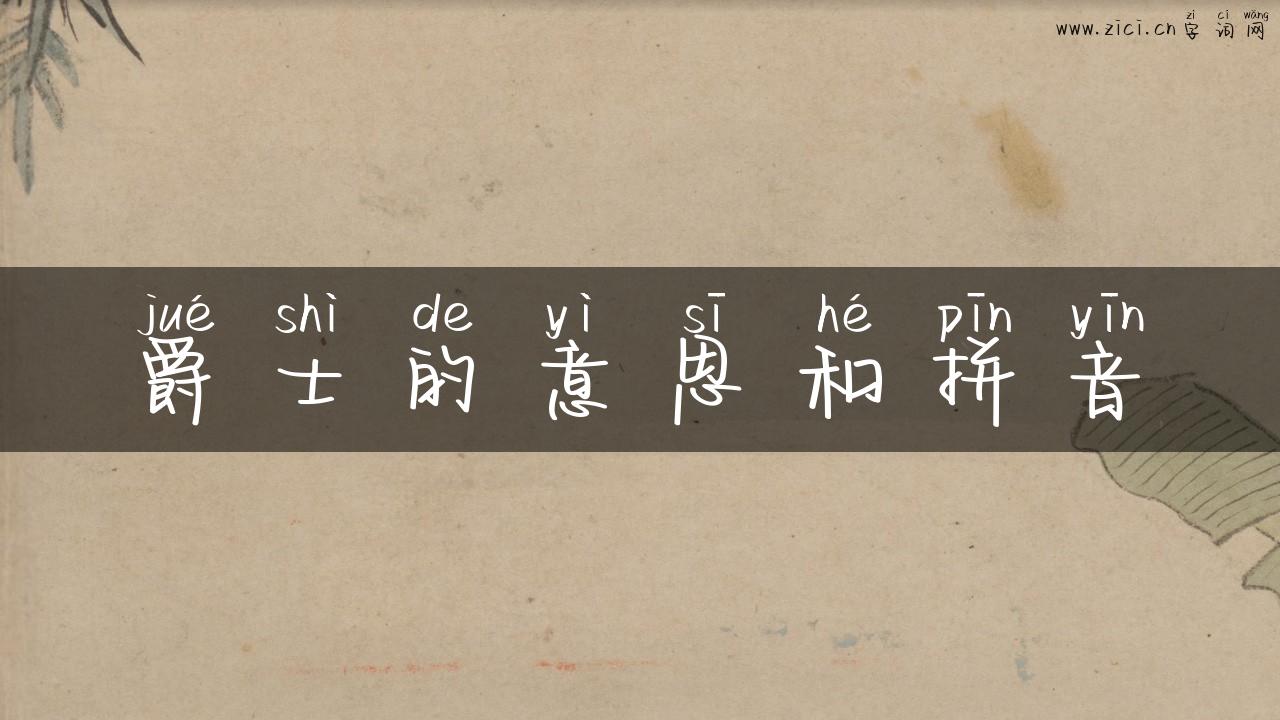 zì cí wǎng
www.zici.cn 字 词 网
jué shì de yì sī hé pīn yīn
爵 士 的 意 思 和 拼 音